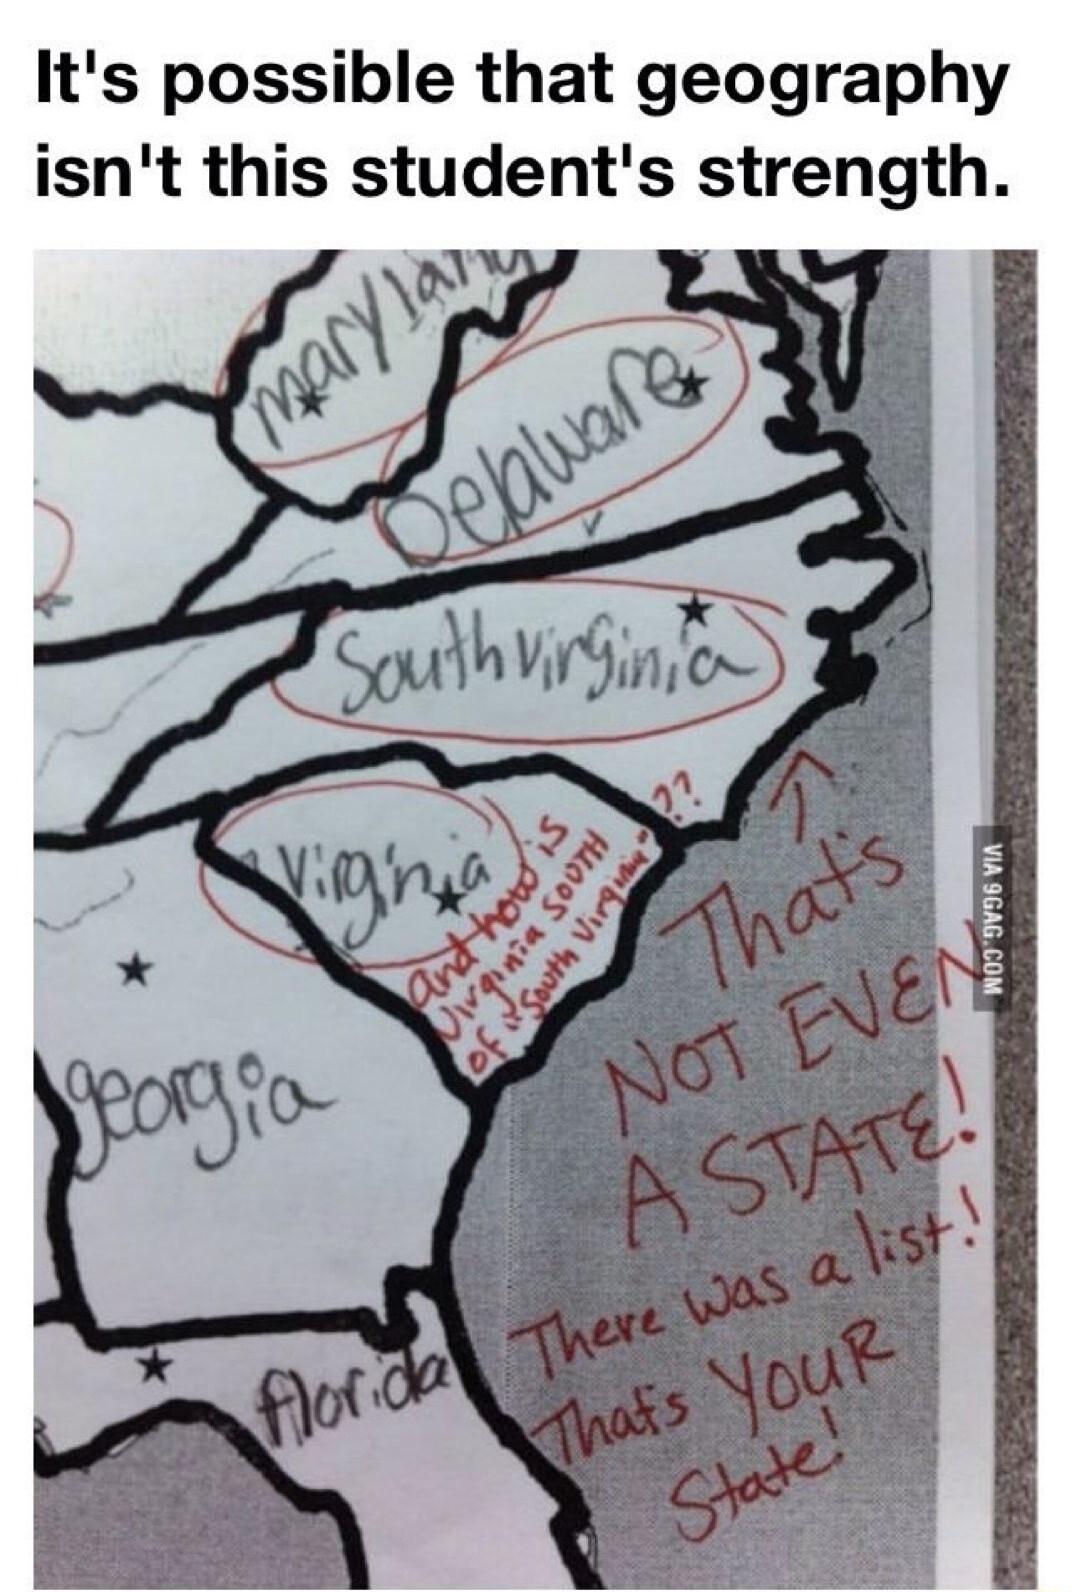 It's possible that geography
isn't this student's strength.
maryland
Delaware
South virginia
Virginia
and how is
Virginia SOUTH
of "South Virginia" ??
That's
NOT EVEN
A STATE!
There was a list!
That's YOUR
State!
georgia
florida
VIA 9GAG.COM